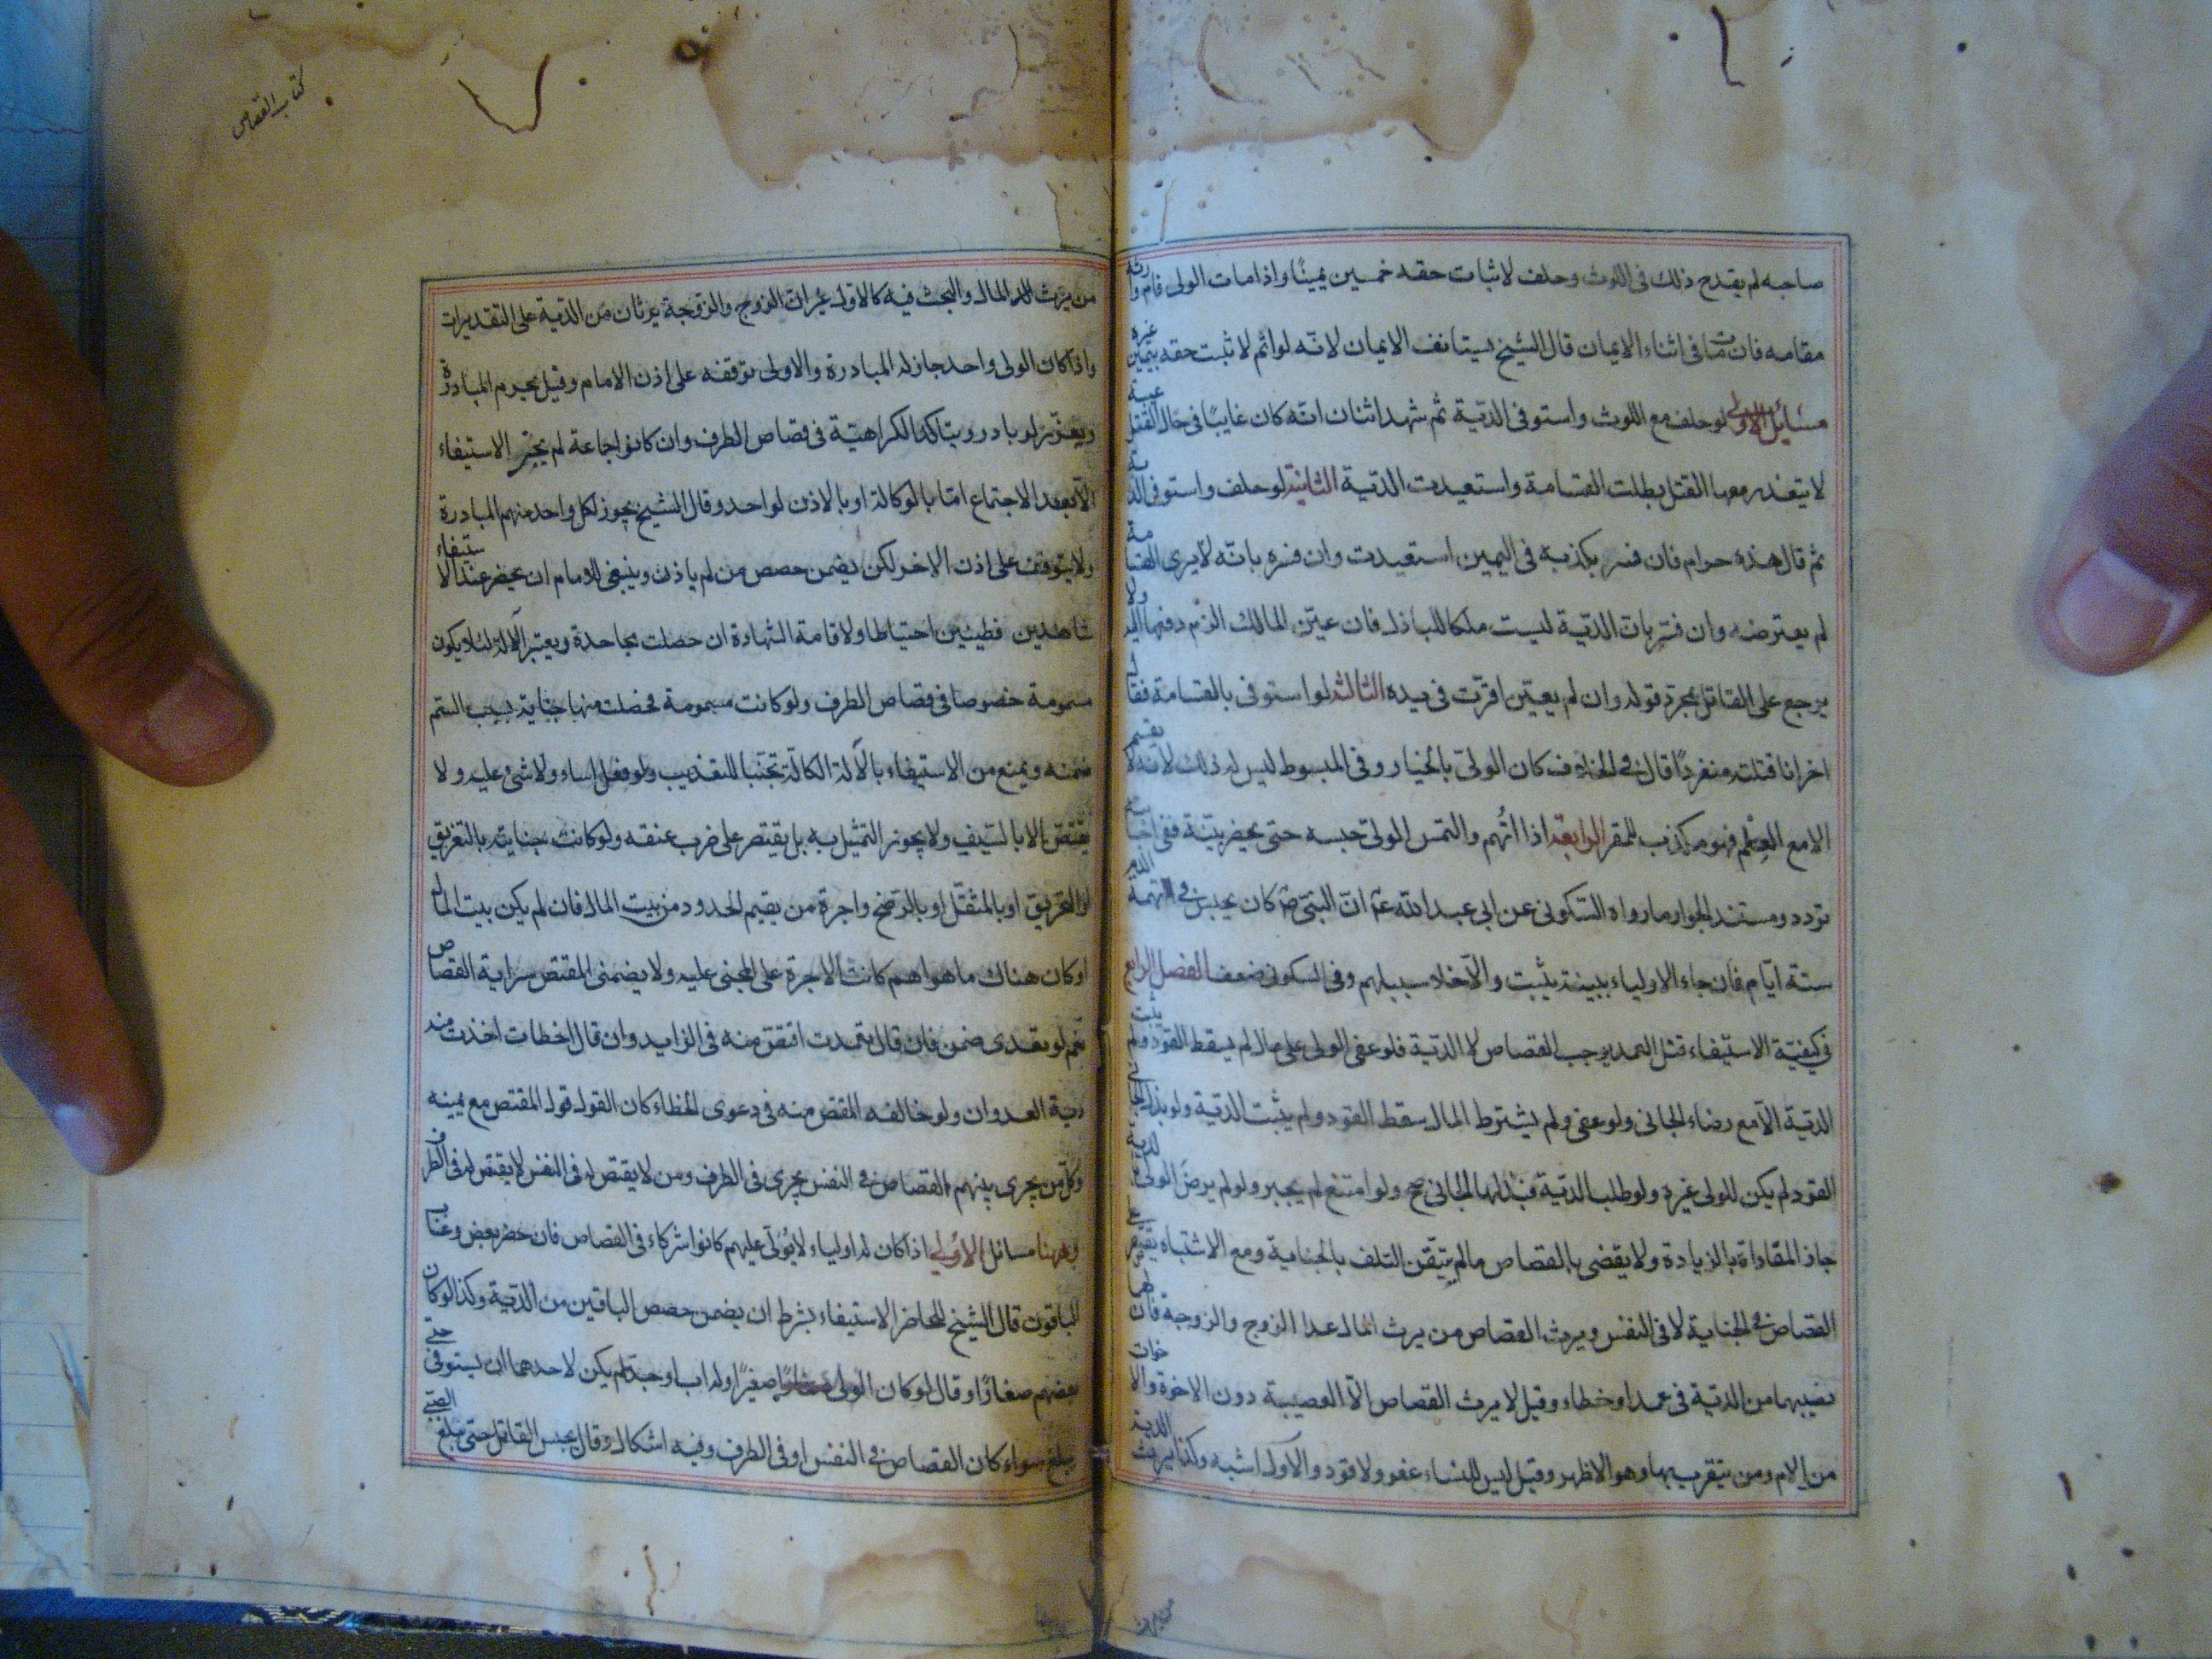 صاحبه لم يقدح ذلك فى اللوث وحلف لاثبات حقه خمسين يمينًا واذا مات الولى قام وارثه
مقامه فان مات فى اثناء الايمان قال الشيخ يستانف الايمان لانّه لو اتم لاثبت حقه بيمين غيره
مسائل الاولى لو حلف مع اللوث واستوفى الديّة ثم شهد اثنان انّه كان غايبًا فى حال القتل غيبة
لا يتعذر معها القتل بطلت القسامة واستعيدت الديّة الثانية لو حلف واستوفى الدية
ثم قال هذه حرام فان فسر بكذبه فى اليمين استعيدت وان فسره بانّه لا يرى القسامة
لم يعترضه وان فسّر بان الديّة ليست ملكا للباذل فان عيّن المالك الزم دفعها اليه ولا
يرجع على القاتل بمجرد قوله وان لم يعيّن اقرّت فى يده الثالثة لو استوفى بالقسامة فقال
اخر انا قتلته منفردًا قال فى الخلاف كان الولىّ بالخيار وفى المبسوط ليس له ذلك لانّه لا يقسم
الا مع العلم فهو مكذب للمقر الرابعة اذا اتُّهم والتمس الولىّ حبسه حتى يحضر بيّنة ففى اجابته
تردد ومستند الجواز ما رواه السّكونى عن ابى عبد الله عم انّ النبّى ص كان يحبس فى تهمة الدم
ستة ايّام فان جاء الاولياء ببينة يثبت والّا خلا سبيلهم وفى السكونى ضعف الفصل الرابع
فى كيفيّة الاستيفاء قتل العمد يوجب القصاص لا الديّة فلو عفى الولى على مال لم يسقط القود ولم يثبت
الديّة الّا مع رضاء الجانى ولو عفى ولم يشترط المال سقط القود ولم يثبت الديّة ولو بذل الجانى
القود لم يكن للولى غيره ولو طلب الديّة فبذلها الجانى صح ولو امتنع لم يجبر ولو لم يرض الولى بالدية
جاز المفاداة بالزيادة ولا يقضى بالقصاص ما لم يتيقّن التلف بالجناية ومع الاشتباه يقتصر على
القصاص فى الجناية لا فى النفس ويرث القصاص من يرث المال عدا الزوج والزوجة فان لهما
نصيبهما من الديّة فى عمد او خطاء وقيل لا يرث القصاص الّا العصبة دون الاخوة والاخوات
من الام ومن يتقرب بها وهو الاظهر وقيل ليس للنساء عفو ولا قود والاوّل اشبه وكذا يرث الدية
من يرث
كتاب القصاص
من يرث المال والبحث فيه كالاول غير انّ الزوج والزوجة يرثان من الديّة على التقديرات
واذا كان الولى واحد جاز له المبادرة والاولى توقفه على اذن الامام وقيل يحرم المبادرة
ويعزّر لو بادر ويتاكد الكراهيّة فى قصاص الطرف وان كانوا جماعة لم يجز الاستيفاء
الّا بعد الاجتماع امّا بالوكالة او بالاذن لواحد وقال الشيخ يجوز لكل واحد منهم المبادرة
ولا يتوقف على اذن الاخر لكن يضمن حصص من لم ياذن وينبغى للامام ان يحضر عند الاستيفاء
شاهدين فطينين احتياطا ولاقامة الشهادة ان حصلت مجاحدة ويعتبر الآلة لئلا يكون
مسمومة خصوصا فى قصاص الطرف ولو كانت مسمومة فحصلت منها جناية بسبب السّم
ضمنه ويمنع من الاستيفاء بالآلة الكالّة تجنّبا للتعذيب ولو فعل اساء ولا شئ عليه ولا
يقتصّ الا بالسّيف ولا يجوز التمثيل به بل يقتصر على ضرب عنقه ولو كانت جنايته بالتغريق
او التحريق او بالمثقّل او بالرّضخ واجرة من يقيم الحدود من بيت المال فان لم يكن بيت المال
او كان هناك ما هو اهم كانت الاجرة على المجنى عليه ولا يضمن المقتص سراية القصاص
نعم لو تعدى ضمن فان قال تعمدت اقتصّ منه فى الزايد وان قال اخطات اخذت منه
دية العدوان ولو خالفه المقتص منه فى دعوى الخطاء كان القول قول المقتص مع يمينه
وكلّ من يجرى بينهم القصاص فى النفس يجرى فى الطرف ومن لا يقتص له فى النفس لا يقتص له فى الطرف
وههنا مسائل الاولى اذا كان له اولياء لا يُولّى عليهم كانوا شركاء فى القصاص فان حضر بعض وغاب
الباقون قال الشيخ للحاضر الاستيفاء بشرط ان يضمن حصص الباقين من الديّة وكذا لو كان
بعضهم صغارًا وقال لو كان الولى صغيرًا وله اب او جد لم يكن لاحدهما ان يستوفى حتى
يبلغ سواء كان القصاص فى النفس او فى الطرف وفيه اشكال وقال يحبس القاتل حتى يبلغ الصبى